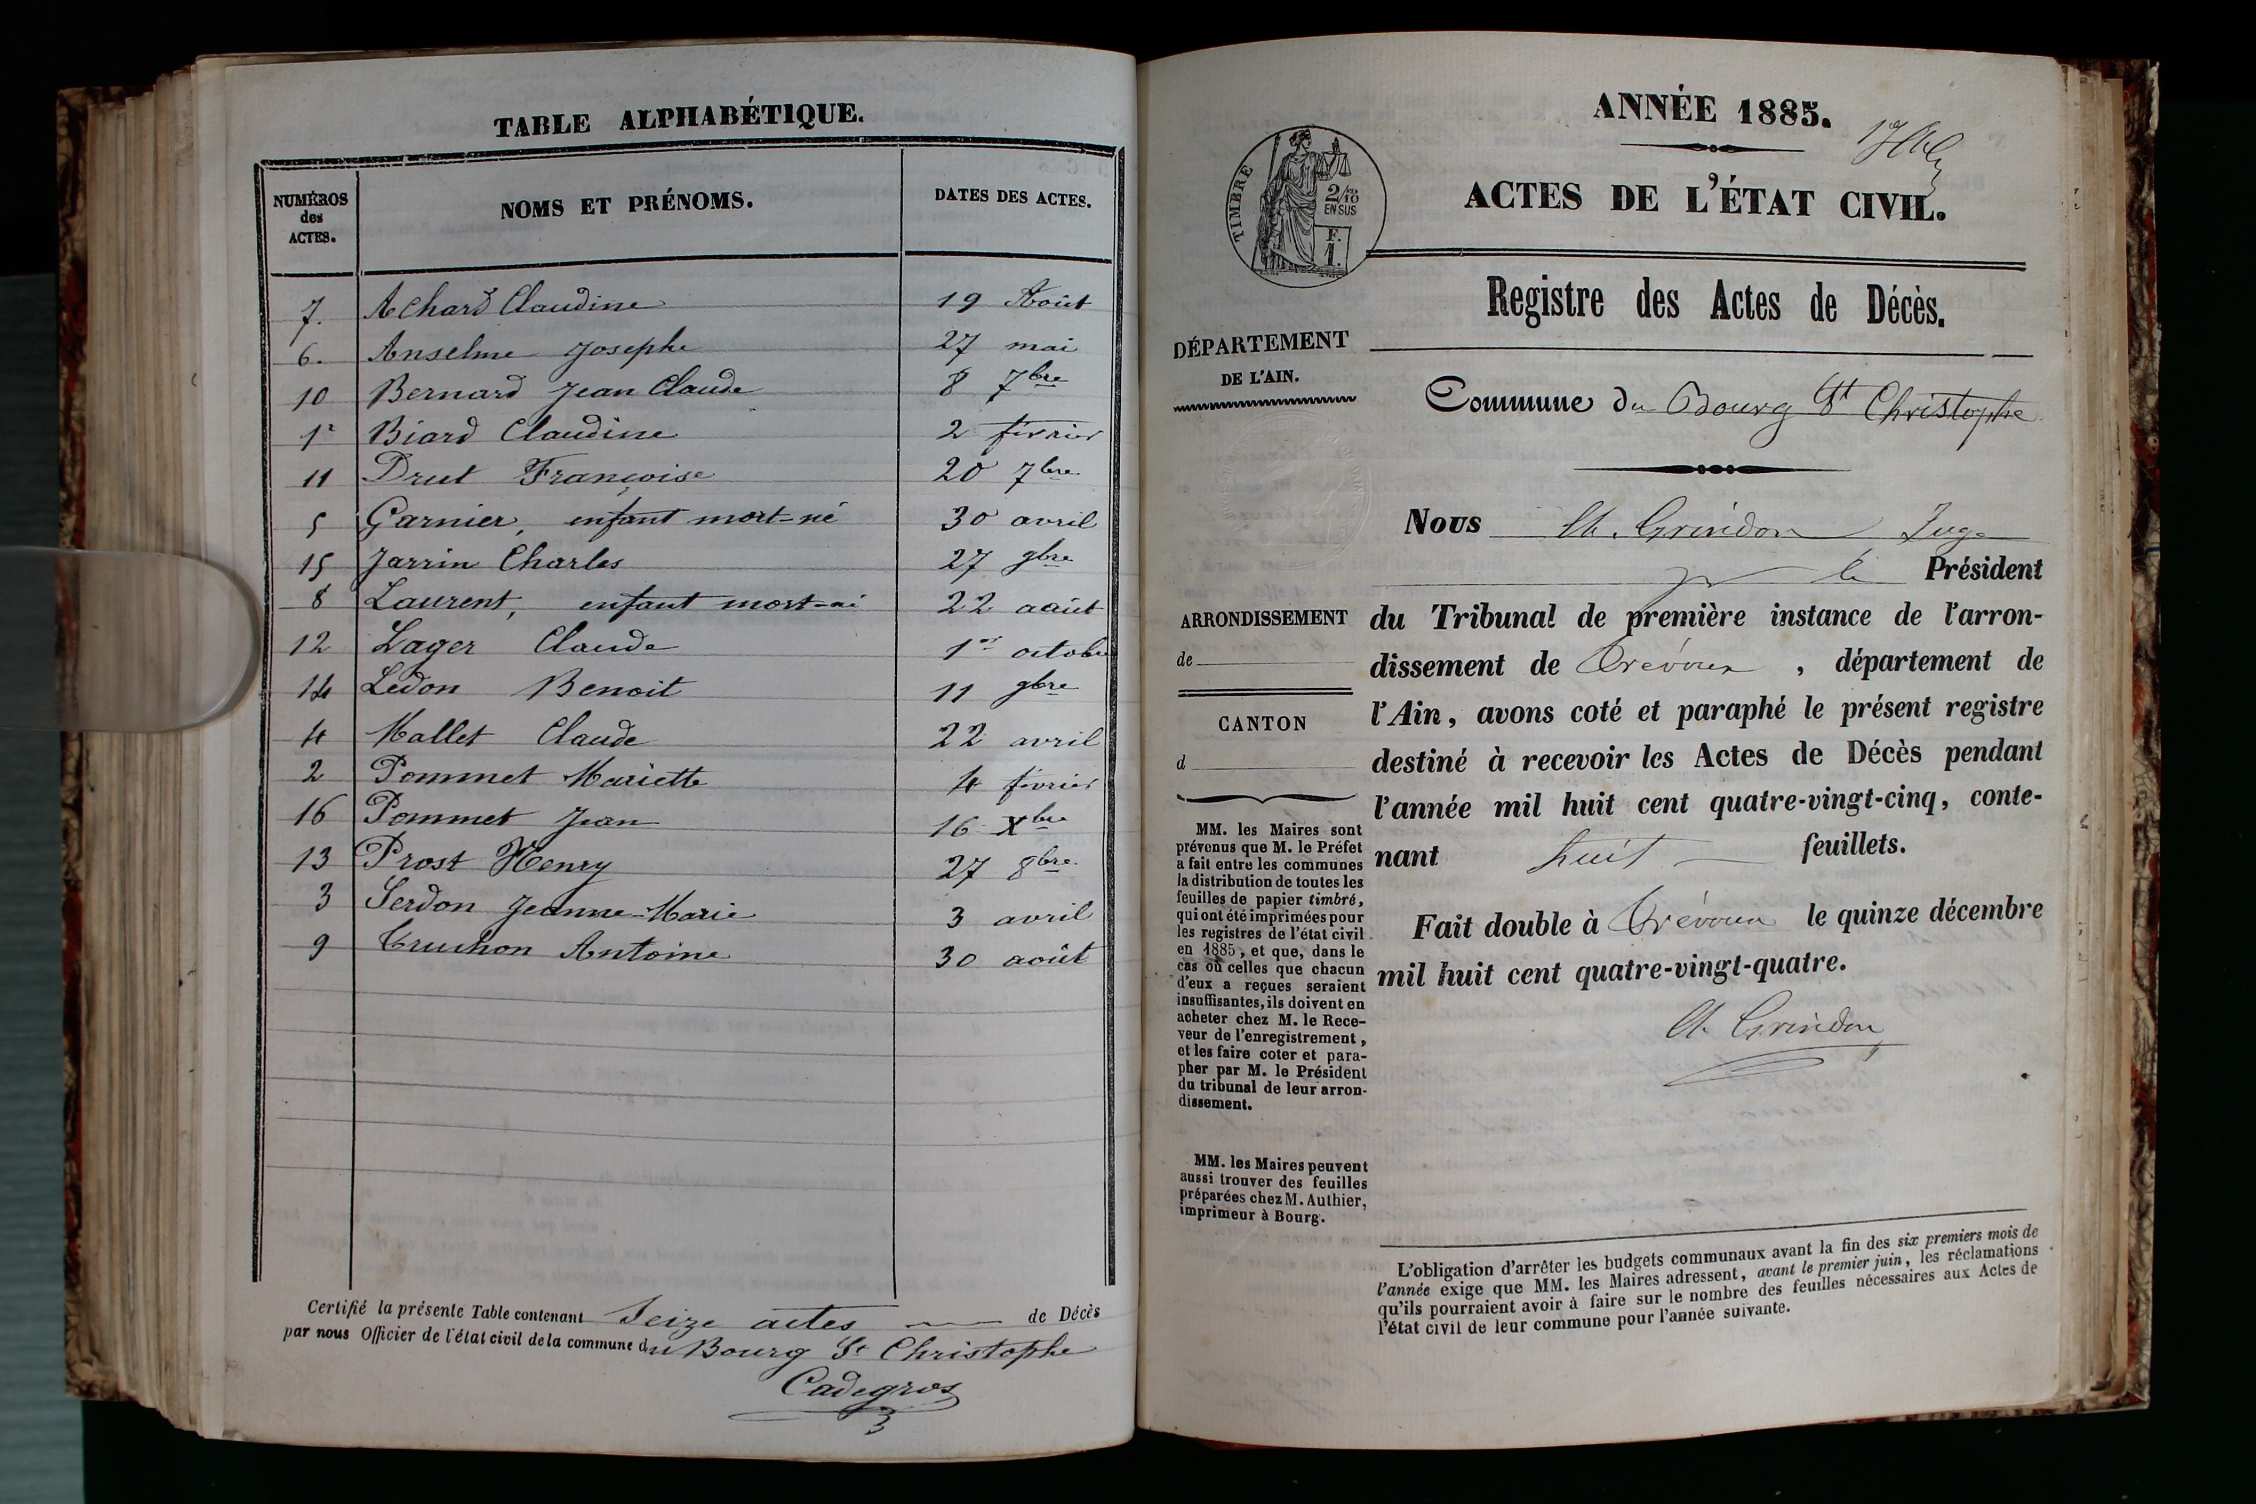 TABLE ALPHABÉTIQUE.
NUMÉROS des ACTES. NOMS ET PRÉNOMS. DATES DES ACTES.
7. Achard Claudine 19 Août
6. Anselme Josephe 27 mai
10 Bernard Jean Claude 8 7bre
1r Biard Claudine 2 février
11 Drut Françoise 20 7bre
5 Garnier, enfant mort-né 30 avril
15 Jarrin Charles 27 9bre
8 Laurent, enfant mort-né 22 août
12 Lager Claude 1er octobre
14 Ledon Benoit 11 9bre
4 Mallet Claude 22 avril
2 Pommet Mariette 4 février
16 Pommet Jean 16 Xbre
13 Prost Henry 27 8bre
3 Serdon Jeanne-Marie 3 avril
9 Truchon Antoine 30 août
Certifié la présente Table contenant Seize actes de Décès
par nous Officier de l'état civil de la commune du Bourg St Christophe
Cadegros
ANNÉE 1885.
ACTES DE L'ÉTAT CIVIL.
TIMBRE
2/10
EN SUS
F.
1.
Registre des Actes de Décès.
DÉPARTEMENT
DE L'AIN.
Commune du Bourg St Christophe
Nous Grindon Juge
Président
ARRONDISSEMENT
de
CANTON
d
du Tribunal de première instance de l'arron-
dissement de Trévoux, département de
l'Ain, avons coté et paraphé le présent registre
destiné à recevoir les Actes de Décès pendant
l'année mil huit cent quatre-vingt-cinq, conte-
nant huit feuillets.
Fait double à Trévoux le quinze décembre
mil huit cent quatre-vingt-quatre.
Grindon
MM. les Maires sont
prévenus que M. le Préfet
a fait entre les communes
la distribution de toutes les
feuilles de papier timbré,
qui ont été imprimées pour
les registres de l'état civil
en 1885, et que, dans le
cas où celles que chacun
d'eux a reçues seraient
insuffisantes, ils doivent en
acheter chez M. le Rece-
veur de l'enregistrement,
et les faire coter et para-
pher par M. le Président
du tribunal de leur arron-
dissement.
MM. les Maires peuvent
aussi trouver des feuilles
préparées chez M. Authier,
imprimeur à Bourg.
L'obligation d'arrêter les budgets communaux avant la fin des six premiers mois de
l'année exige que MM. les Maires adressent, avant le premier juin, les réclamations
qu'ils pourraient avoir à faire sur le nombre des feuilles nécessaires aux Actes de
l'état civil de leur commune pour l'année suivante.